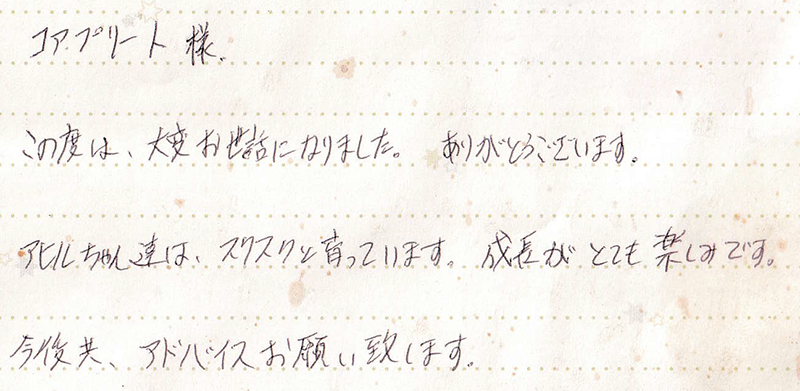 コアプリート 様.
この度は、大変お世話になりました。 ありがとうございます。
アヒルちゃん達は、スクスクと育っています。成長がとても楽しみです。
今後共、アドバイスお願い致します。